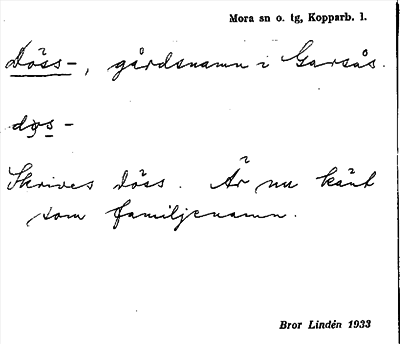 Mora sn o. tg, Kopparb. l.
Döss-, gårdsnamn i Garsås.
dys-
Skrives Döss. Är nu känt
som familjenamn.
Bror Lindén 1933